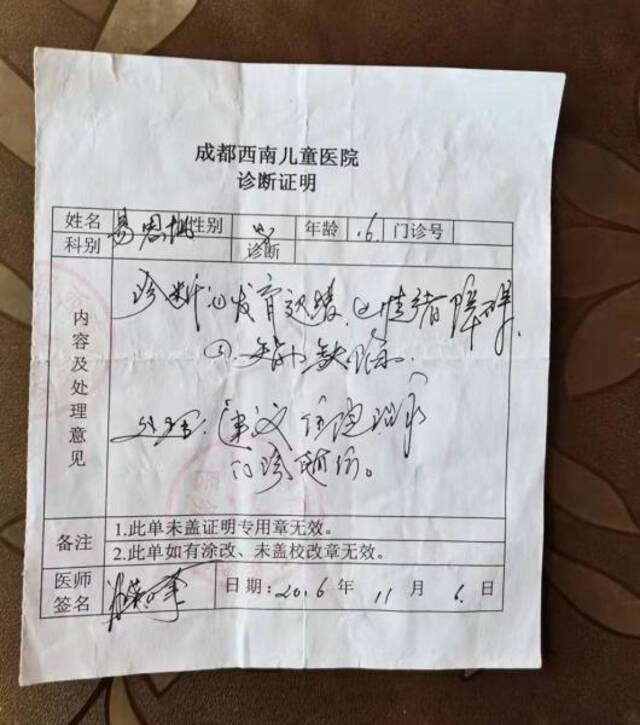 成都西南儿童医院
诊断证明
姓名 易思 性别 女 年龄 6 门诊号
科别 诊断
内容及处理意见
诊断:①发育迟缓 ②情绪障碍
③ 缺陷
处理:建议住院
备注
1.此单未盖证明专用章无效。
2.此单如有涂改、未盖校改章无效。
医师签名
日期:2016年11月6日